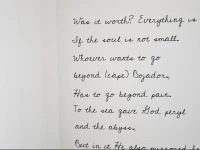 Was it worth? Everything is
If the soul is not small.
Whoever wants to go
beyond (cape) Bojador,
Has to go beyond pain.
To the sea gave God peryl
and the abyss,
But in it He also mirrored